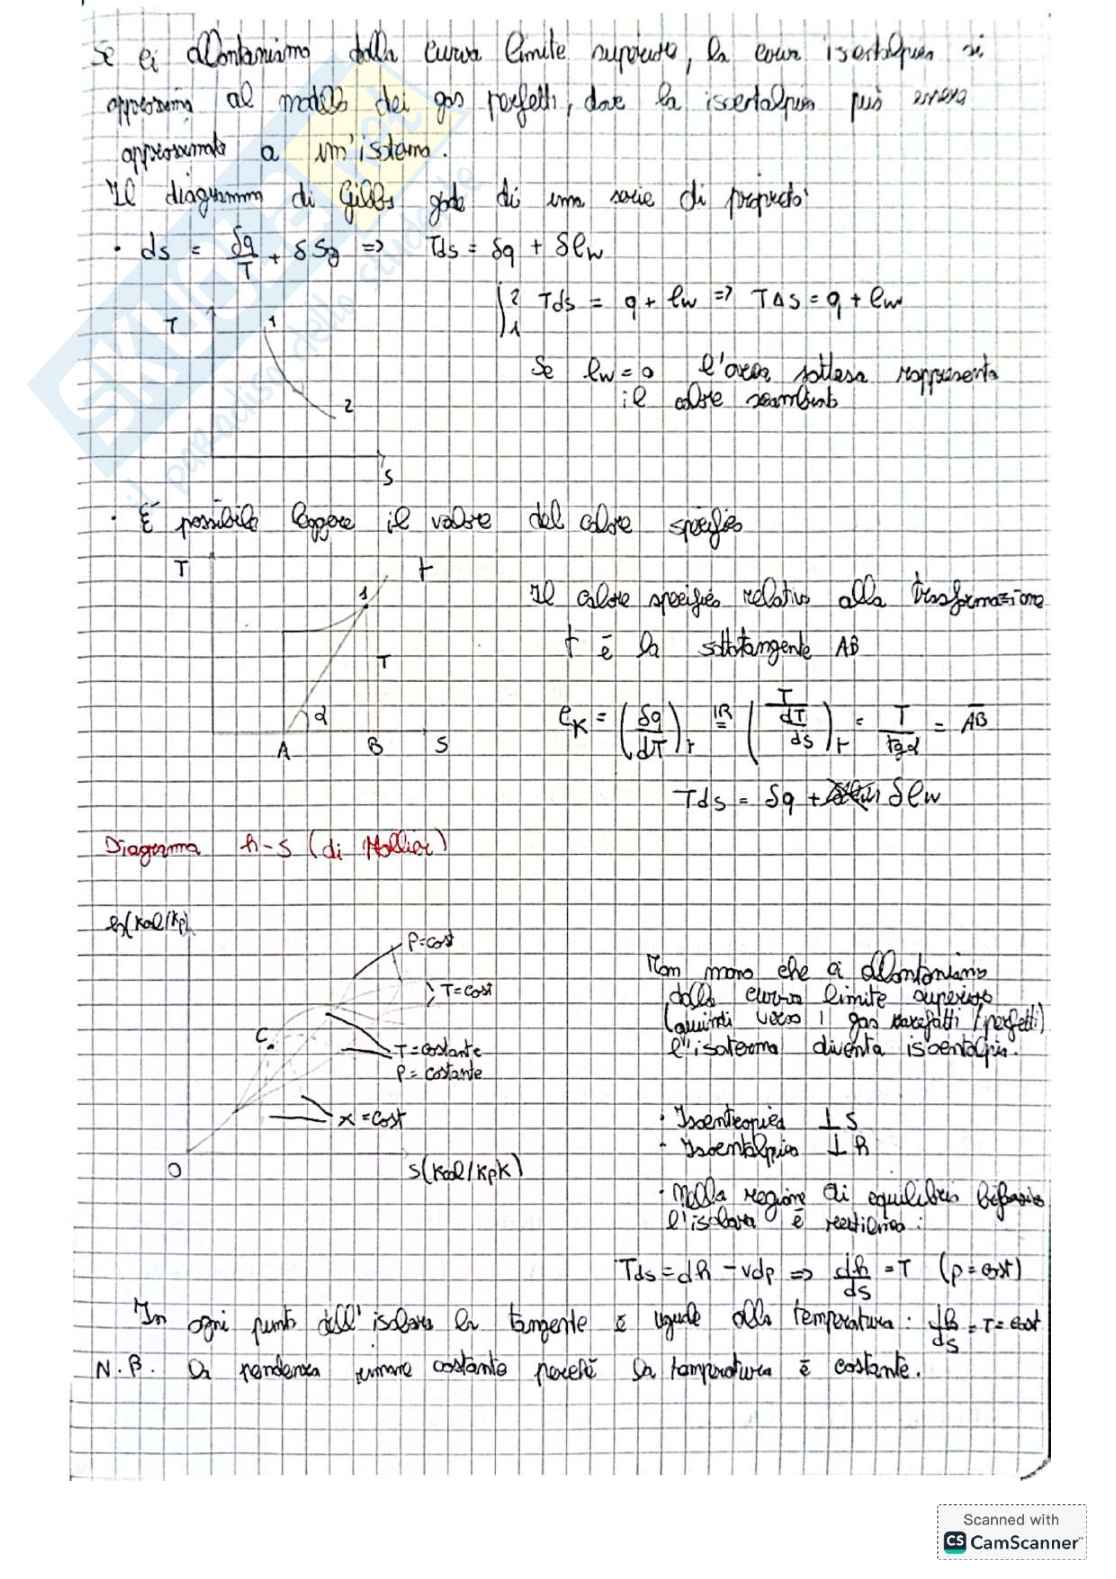 Se ci allontaniamo dalla curva limite superiore, la curva isoentalpica si
approssima al modello dei gas perfetti, dove la isoentalpica può essere
approssimata a un'isoterma.
Il diagramma di Gibbs gode di una serie di proprietà:
• ds = δq/T + δSg => Tds = δq + δlw
∫₁² Tds = q + lw => TΔs = q + lw
T
1
2
S
Se lw = 0 l'area sottesa rappresenta
il calore scambiato
• È possibile leggere il valore del calore specifico
T
t
1
T
α
A
B
S
Il calore specifico relativo alla trasformazione
t è la sottotangente AB
CK = (δq/dT)t =IR (T/(dT/ds))t = T/tgα = AB
Tds = δq + δlw
Diagramma h-s (di Mollier)
h(Kcal/Kp)
P=cost
T=cost
C
T=costante
P=costante
x=cost
O
S(Kcal/KpK)
Man mano che ci allontaniamo
dalla curva limite superiore
(quindi verso i gas rarefatti/perfetti)
l'isoterma diventa isoentalpica.
• Isoentropica ⊥ S
• Isoentalpica ⊥ h
• Nella regione di equilibrio bifasico
l'isobara è rettilinea:
Tds = dh - vdp => dh/ds = T (p=cost)
In ogni punto dell'isobara la tangente è uguale alla temperatura: dh/ds = T = cost
N.B. la pendenza rimane costante perché la temperatura è costante.
SKUOLA.net
il paradiso dello studente
Scanned with
CS CamScanner